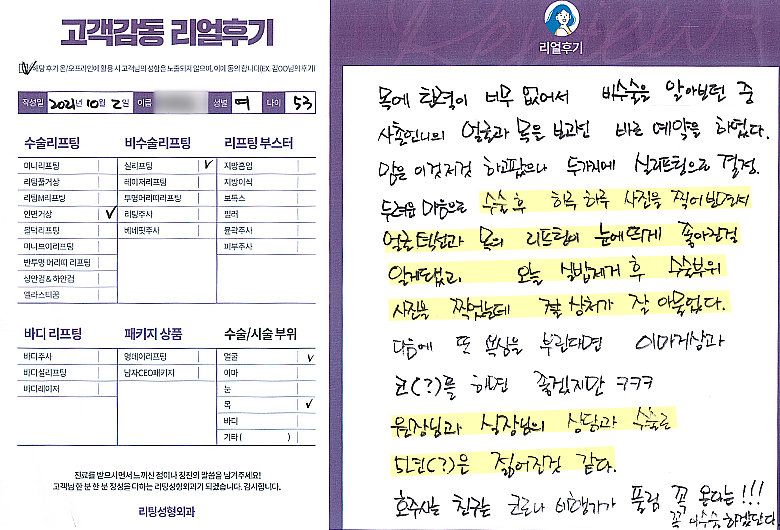 고객감동 리얼후기
해당 후기 온/오프라인에 활용 시 고객님의 성함은 노출되지 않으며, 이에 동의 합니다(EX. 김OO님의 후기)
작성일 2021년 10월 2일 이름 성별 여 나이 53
수술리프팅
미니리프팅
리팅풀거상
리팅M리프팅
안면거상 ✓
볼턱리프팅
미니브이리프팅
반투명 머리띠 리프팅
상안검 & 하안검
엘라스티꿈
비수술리프팅
실리프팅 ✓
레이저리프팅
투명머리띠리프팅
리팅주사
베네핏주사
리프팅 부스터
지방흡입
지방이식
보톡스
필러
윤곽주사
피부주사
바디 리프팅
바디주사
바디실리프팅
바디레이저
패키지 상품
영데이리프팅
남자CEO패키지
수술/시술 부위
얼굴 ✓
이마
눈
목 ✓
바디
기타 ( )
진료를 받으시면서 느끼신 점이나 칭찬의 말씀을 남겨주세요!
고객님 한 분 한 분 정성을 다하는 리팅성형외과가 되겠습니다. 감사합니다.
리팅성형외과
리얼후기
목에 탄력이 너무 없어서 비수술을 알아보던 중
사촌언니의 얼굴과 목을 보고선 바로 예약을 하였다.
맘은 이것저것 하고팠으나 두가지에 실리프팅으로 결정.
두려운 마음으로 수술 후 하루 하루 사진을 찍어 보면서
얼굴턱선과 목의 리프팅이 눈에띄게 좋아진걸
알게됐고 오늘 실밥제거 후 수술부위
사진을 찍었는데 겉 상처가 잘 아물었다.
다음에 또 욕심을 부린다면 이마거상과
코(?)를 하면 좋겠지만 ㅋㅋㅋ
원장님과 실장님의 상담과 수술로
5년(?)은 젊어진것 같다.
호주사는 친구는 코로나 비행기가 풀림 꼭 온다는!!!
꼭 수술 하겠단다